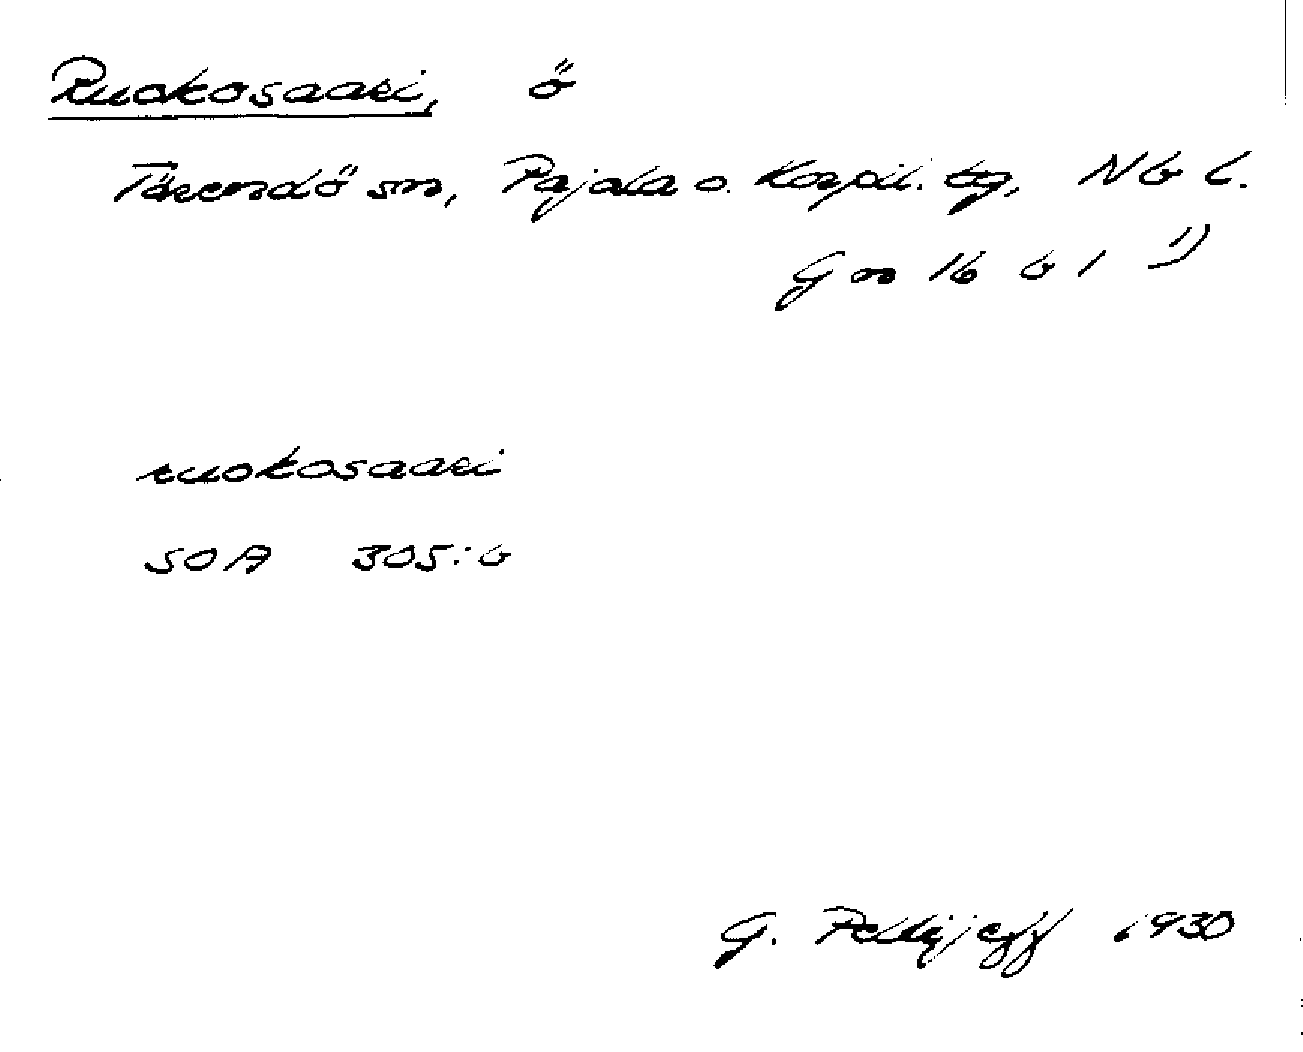 Ruokosaari, ö
Tärendö sn, Pajala o. Korpil. tg, Nb l.
Gm 16 b 1 1)
ruokosaari
SOA 305:6
G. Pellijeff 1930